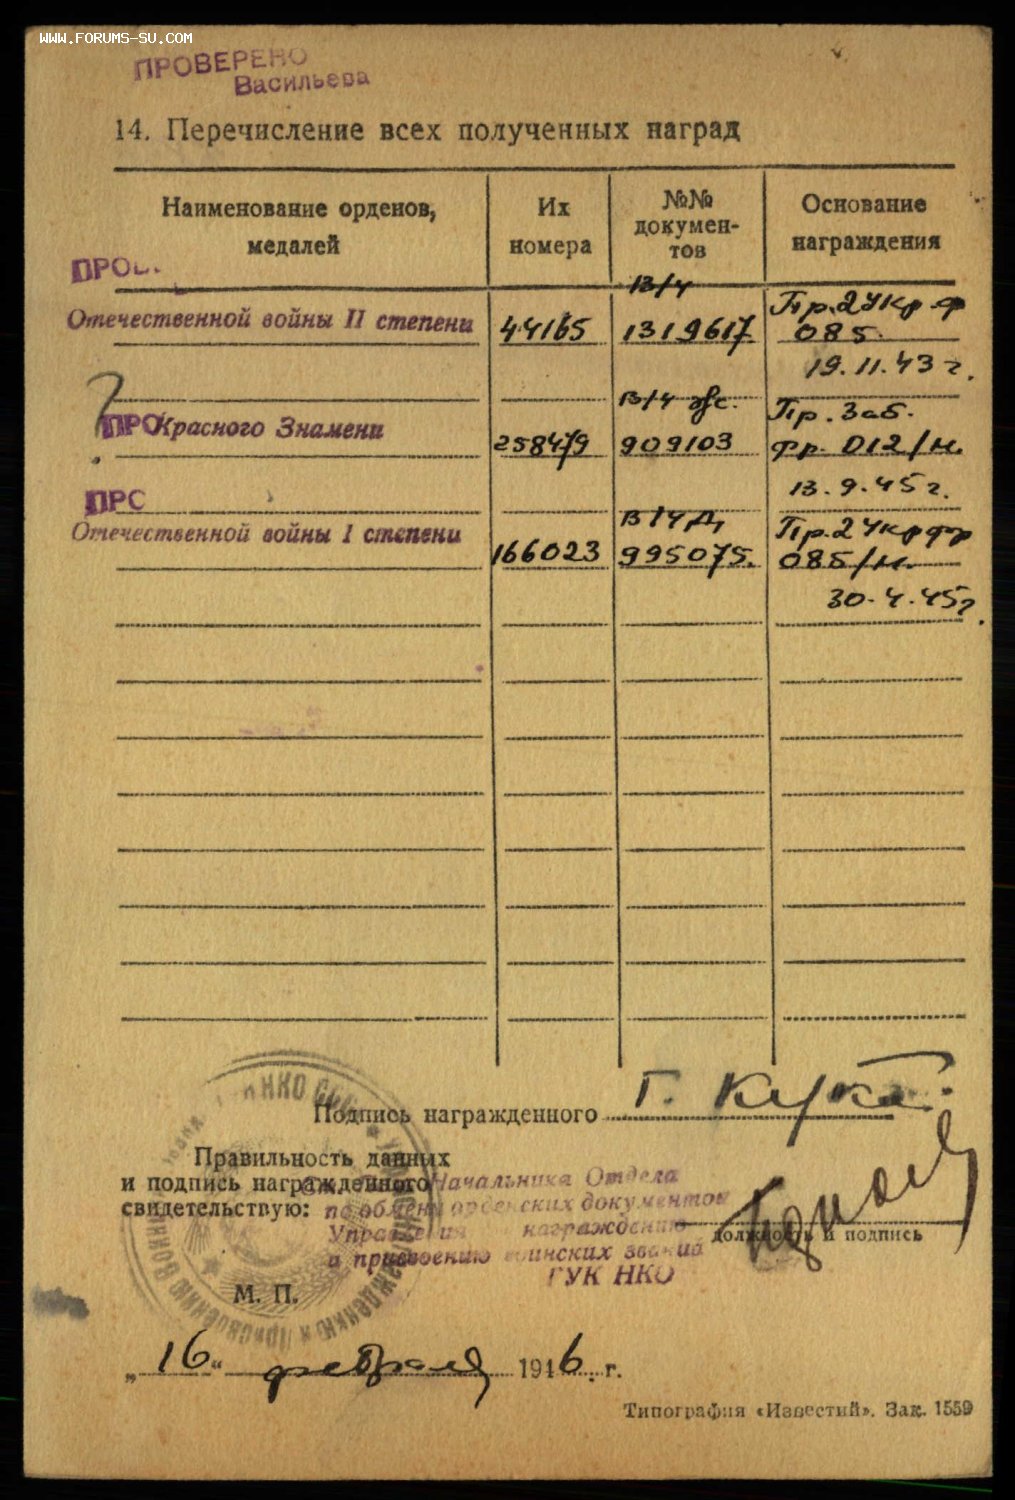 WWW.FORUMS-SU.COM
ПРОВЕРЕНО
Васильева
14. Перечисление всех полученных наград
Наименование орденов, медалей
Их номера
№№ докумен-тов
Основание награждения
ПРОВ
Отечественной войны II степени 44165 в/ч 1319617 Пр. 2 Укр ф 085. 19.11.43 г.
?
ПРО Красного Знамени 258479 в/ч ж. 909103 Пр. Заб. фр. 012/н. 13.9.45 г.
ПРО
Отечественной войны I степени 166023 в/ч Д, 995075. Пр. 2 Укр фр 085/н. 30.4.45 г.
Подпись награжденного Г. Кука
Правильность данных
и подпись награжденного
свидетельствую:
Начальника Отдела
по обмену орденских документов
Управления награждению
и присвоению воинских званий
ГУК НКО
должность и подпись
М. П.
„16“ февраля 1946. г.
Типография «Известий». Зак. 1559